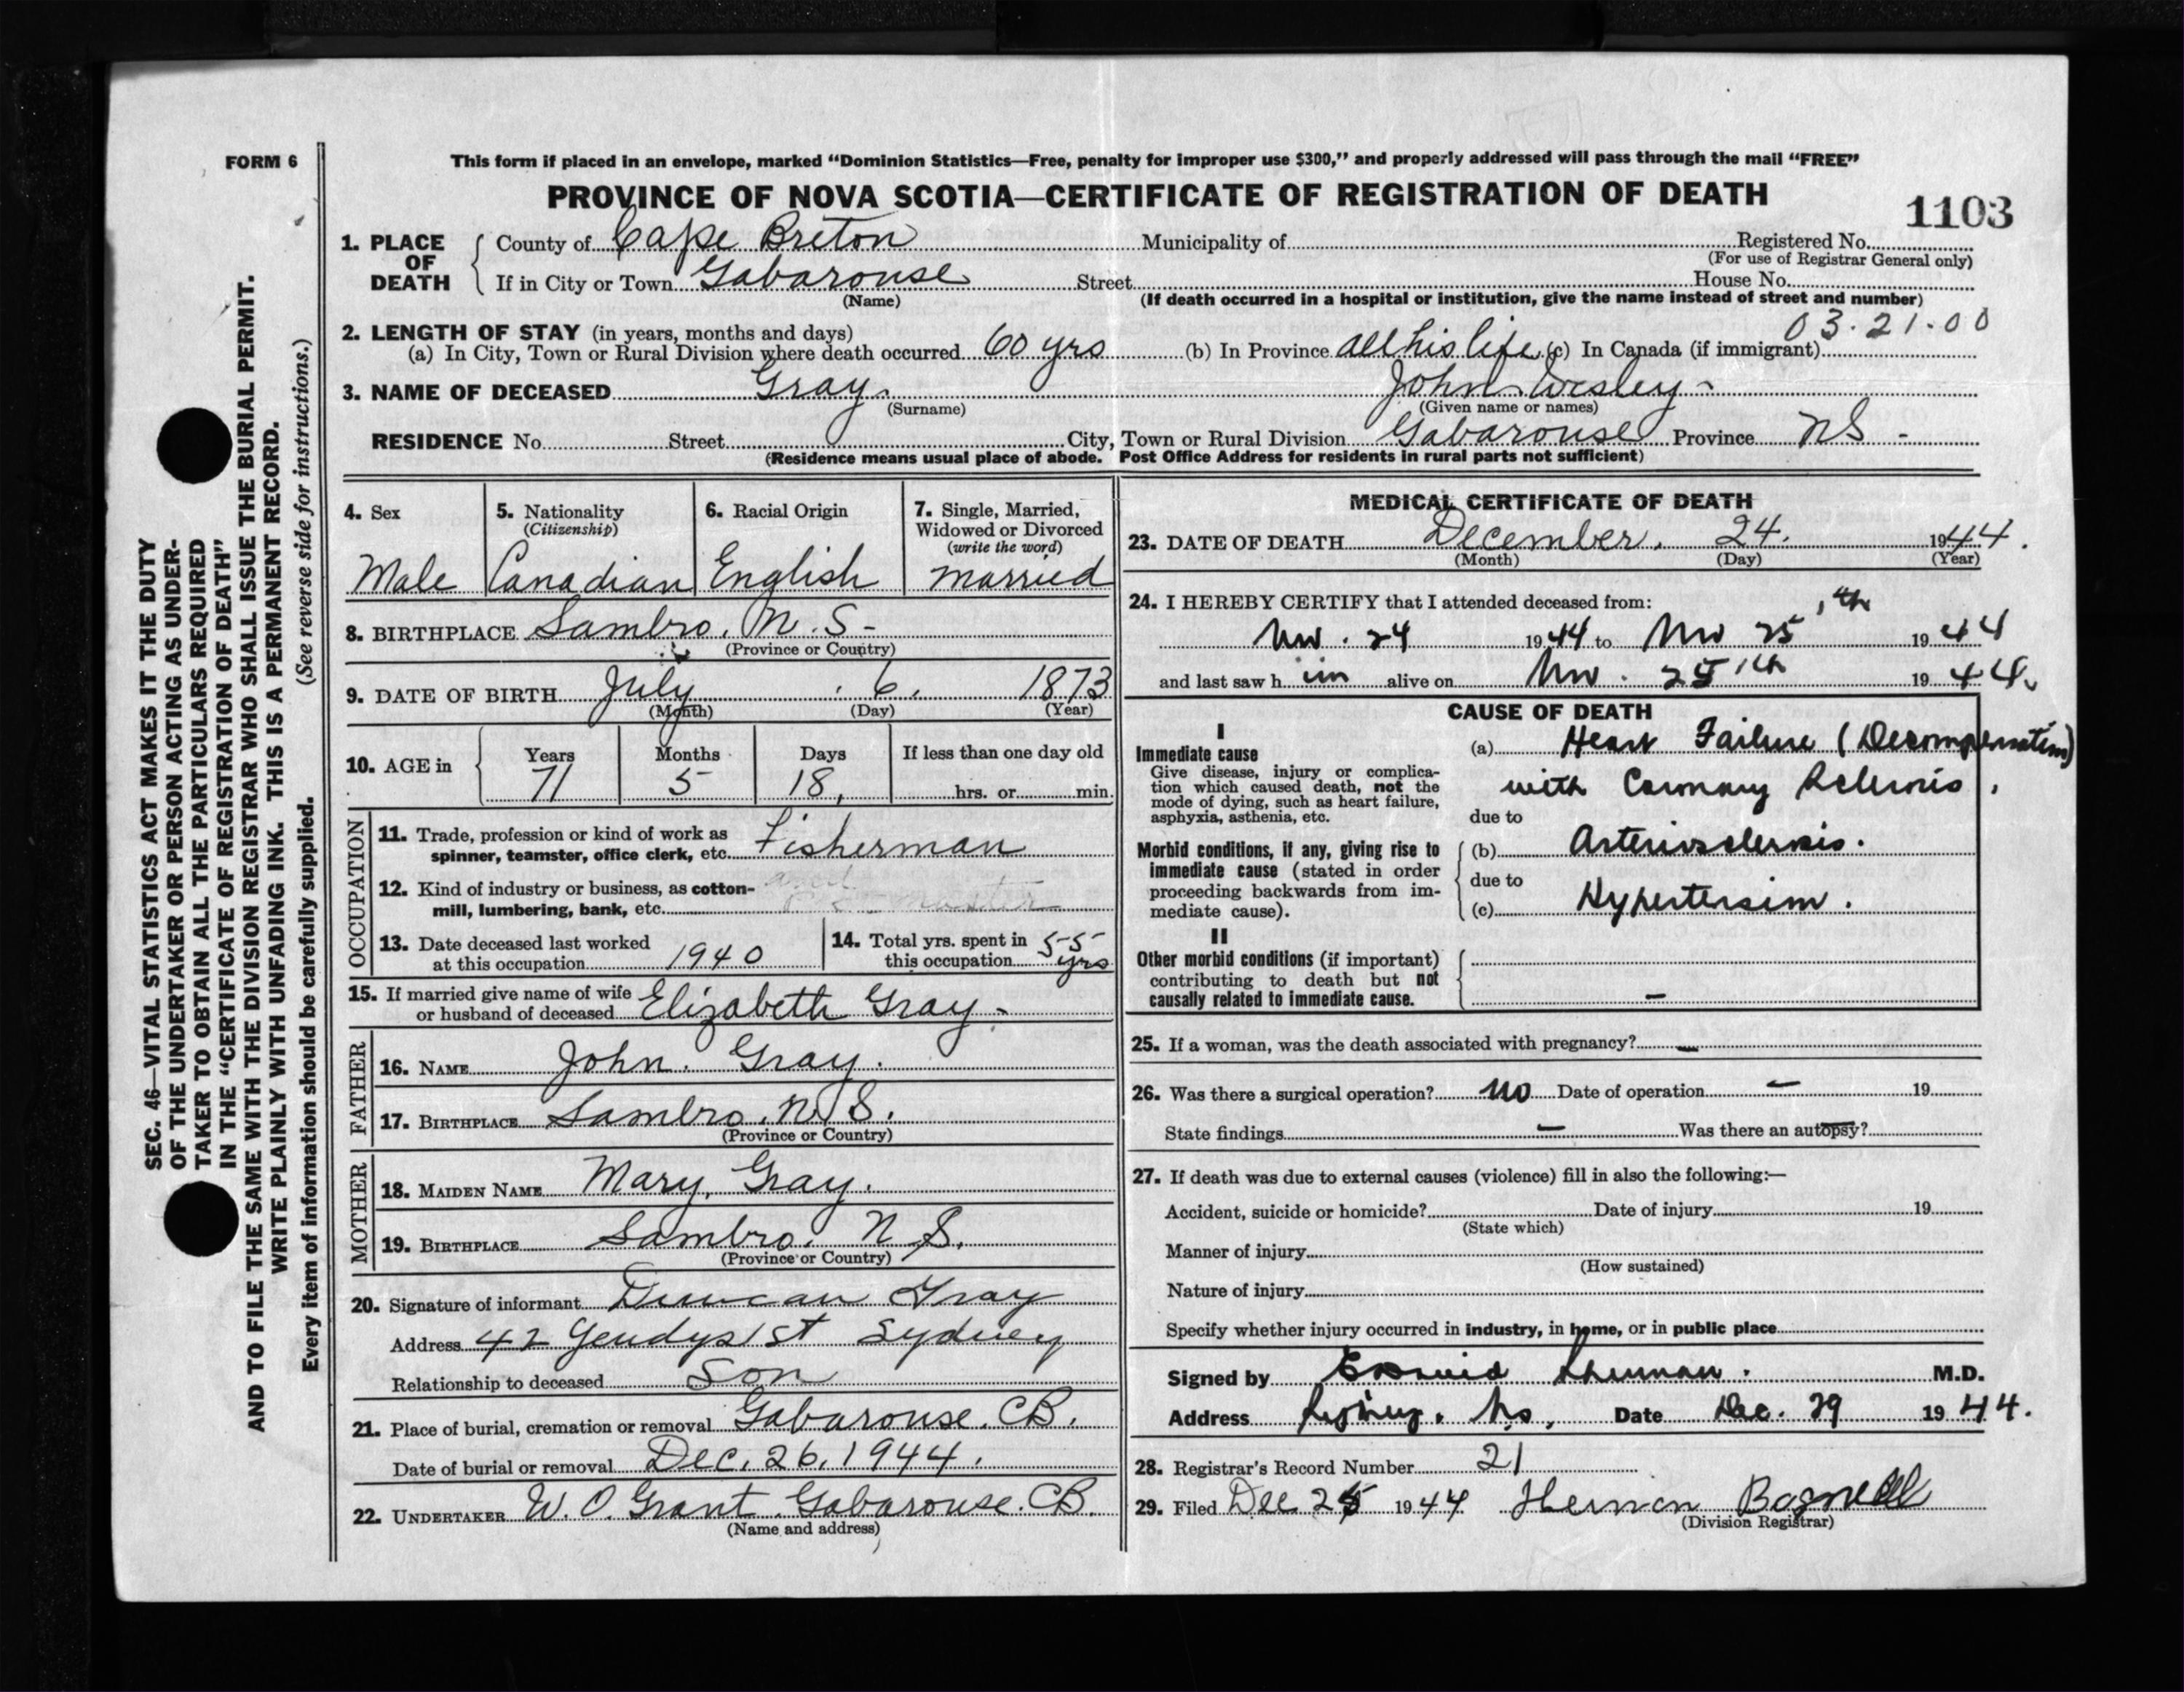 FORM 6
This form if placed in an envelope, marked “Dominion Statistics—Free, penalty for improper use $300,” and properly addressed will pass through the mail “FREE”
PROVINCE OF NOVA SCOTIA—CERTIFICATE OF REGISTRATION OF DEATH
1103
1. PLACE OF DEATH
County of Cape Breton Municipality of Registered No.
(For use of Registrar General only)
If in City or Town Gabarouse Street House No.
(Name) (If death occurred in a hospital or institution, give the name instead of street and number)
03.21.00
2. LENGTH OF STAY (in years, months and days)
(a) In City, Town or Rural Division where death occurred 60 yrs (b) In Province all his life (c) In Canada (if immigrant)
3. NAME OF DECEASED Gray. John Wesley -
(Surname) (Given name or names)
RESIDENCE No. Street City, Town or Rural Division Gabarouse Province NS -
(Residence means usual place of abode. Post Office Address for residents in rural parts not sufficient)
4. Sex
Male
5. Nationality
(Citizenship)
Canadian
6. Racial Origin
English
7. Single, Married,
Widowed or Divorced
(write the word)
married
8. BIRTHPLACE Sambro, N.S-
(Province or Country)
9. DATE OF BIRTH July 6, 1873
(Month) (Day) (Year)
10. AGE in
Years Months Days If less than one day old
71 5 18, hrs. or min.
OCCUPATION
11. Trade, profession or kind of work as
spinner, teamster, office clerk, etc. Fisherman
12. Kind of industry or business, as cotton-
mill, lumbering, bank, etc. and
13. Date deceased last worked
at this occupation 1940
14. Total yrs. spent in
this occupation 55 yrs
15. If married give name of wife
or husband of deceased Elizabeth Gray -
FATHER
16. NAME John. Gray.
17. BIRTHPLACE Sambro, N.S.
(Province or Country)
MOTHER
18. MAIDEN NAME Mary, Gray.
19. BIRTHPLACE Sambro. N S.
(Province or Country)
20. Signature of informant Duncan Gray
Address 42 St Sydney
Relationship to deceased Son
21. Place of burial, cremation or removal Gabarouse. CB.
Date of burial or removal Dec. 26, 1944.
22. UNDERTAKER W. O. Grant. Gabarouse. CB.
(Name and address)
MEDICAL CERTIFICATE OF DEATH
23. DATE OF DEATH December, 24. 1944.
(Month) (Day) (Year)
24. I HEREBY CERTIFY that I attended deceased from:
Nov. 24 1944 to Nov 25th 1944
and last saw him alive on Nov. 25th 1944.
CAUSE OF DEATH
I
Immediate cause
Give disease, injury or complica-
tion which caused death, not the
mode of dying, such as heart failure,
asphyxia, asthenia, etc.
(a) Heart Failure (Decompensation)
with Coronary Sclerosis.
due to
Morbid conditions, if any, giving rise to
immediate cause (stated in order
proceeding backwards from im-
mediate cause).
(b) Arteriosclerosis.
due to
(c) Hypertension.
II
Other morbid conditions (if important)
contributing to death but not
causally related to immediate cause. -
25. If a woman, was the death associated with pregnancy? -
26. Was there a surgical operation? no Date of operation - 19
State findings - Was there an autopsy?
27. If death was due to external causes (violence) fill in also the following:—
Accident, suicide or homicide? Date of injury 19
(State which)
Manner of injury
(How sustained)
Nature of injury
Specify whether injury occurred in industry, in home, or in public place
Signed by M.D.
Address Sydney, NS, Date Dec. 29 1944.
28. Registrar's Record Number 21
29. Filed Dec 1944 Bagnell
(Division Registrar)
SEC. 46—VITAL STATISTICS ACT MAKES IT THE DUTY
OF THE UNDERTAKER OR PERSON ACTING AS UNDER-
TAKER TO OBTAIN ALL THE PARTICULARS REQUIRED
IN THE “CERTIFICATE OF REGISTRATION OF DEATH”
AND TO FILE THE SAME WITH THE DIVISION REGISTRAR WHO SHALL ISSUE THE BURIAL PERMIT.
WRITE PLAINLY WITH UNFADING INK. THIS IS A PERMANENT RECORD.
Every item of information should be carefully supplied. (See reverse side for instructions.)